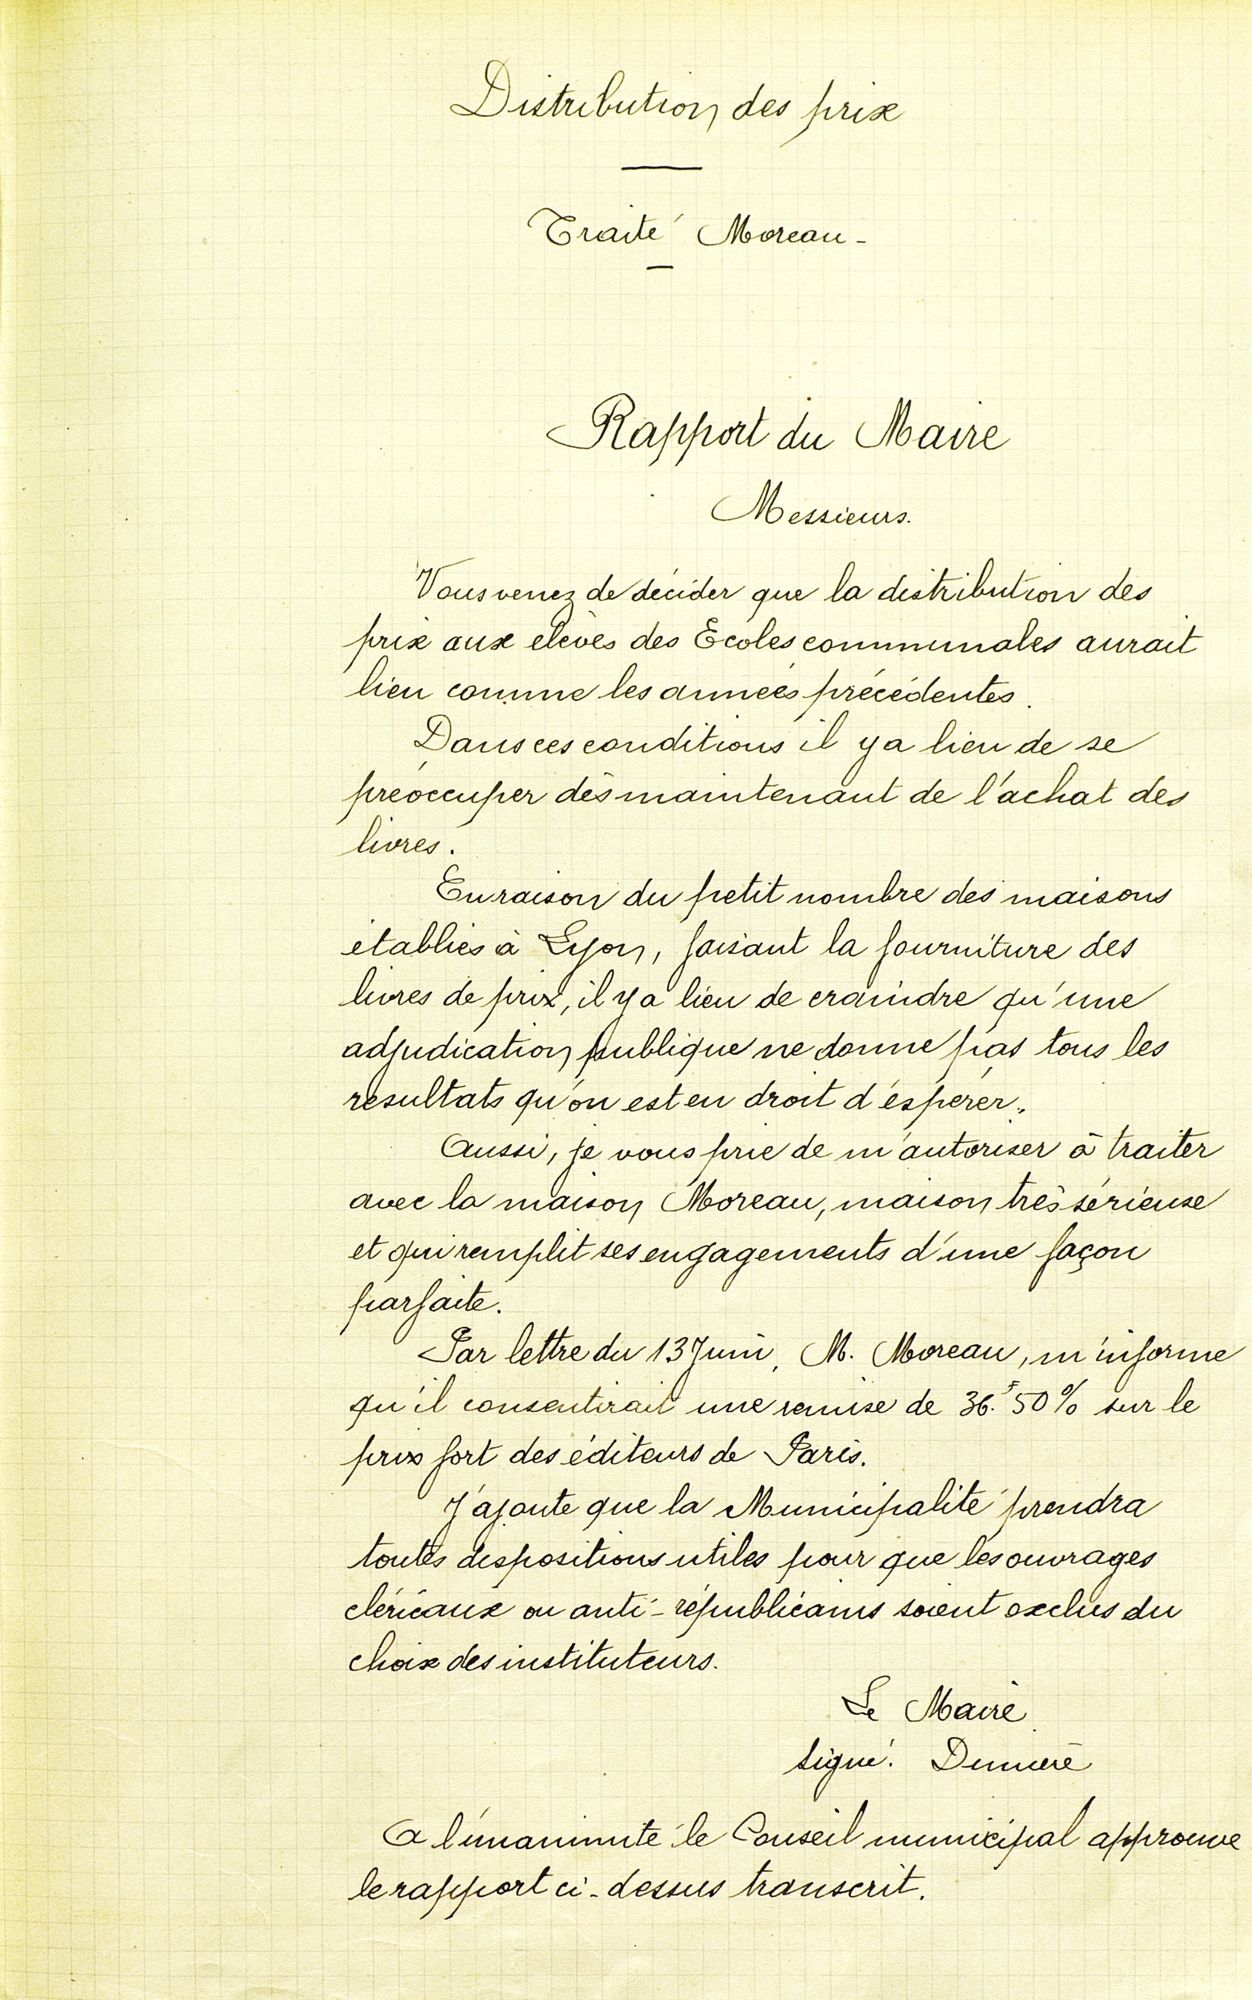 Distribution des prix
Traité Moreau -
Rapport du Maire
Messieurs.
Vous venez de décider que la distribution des
prix aux élèves des Ecoles communales aurait
lieu comme les années précédentes.
Dans ces conditions il y a lieu de se
préoccuper dès maintenant de l'achat des
livres.
En raison du petit nombre des maisons
établies à Lyon, faisant la fourniture des
livres de prix, il y a lieu de craindre qu'une
adjudication publique ne donne pas tous les
résultats qu'on est en droit d'espérer.
Aussi, je vous prie de m'autoriser à traiter
avec la maison Moreau, maison très sérieuse
et qui remplit ses engagements d'une façon
parfaite.
Par lettre du 13 Juin, M. Moreau, m'informe
qu'il consentirait une remise de 36.f 50 % sur le
prix fort des éditeurs de Paris.
J'ajoute que la Municipalité prendra
toutes dispositions utiles pour que les ouvrages
cléricaux ou anti-républicains soient exclus du
choix des instituteurs.
Le Maire
signé:
A l'unanimité le Conseil municipal approuve
le rapport ci-dessus transcrit.